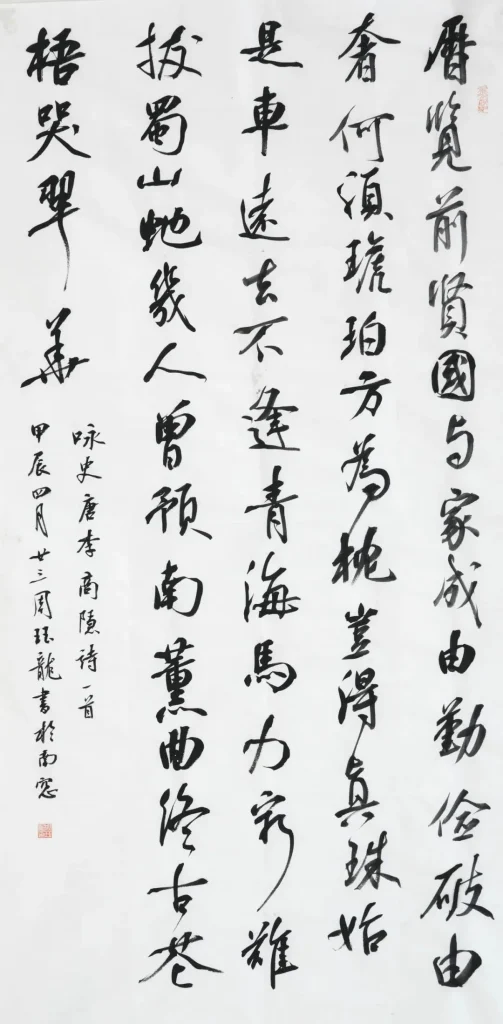 曆覽前賢國与家成由勤儉破由
奢何須琥珀方為枕豈得真珠始
是車遠去不逢青海馬力窮難
拔蜀山蛇幾人曾預南薰曲終古蒼
梧哭翠華
咏史唐李商隱詩一首
甲辰四月廿三周珏龍書於南窓